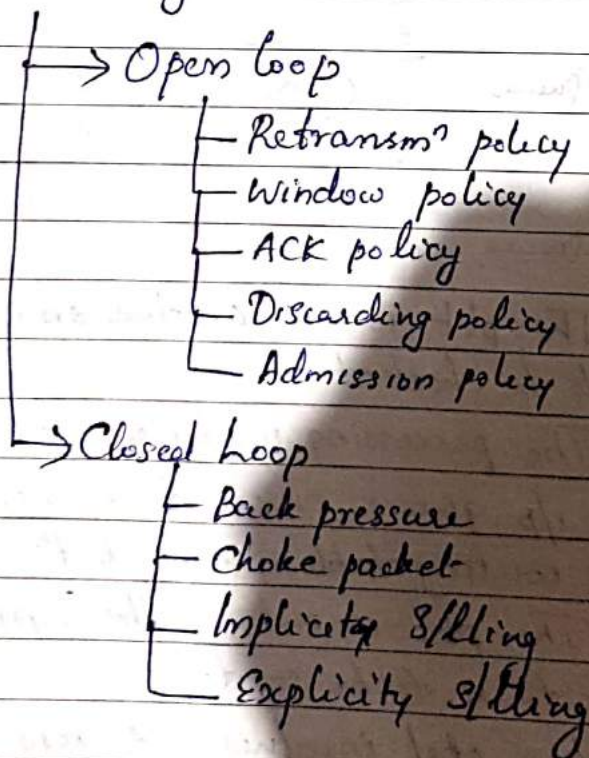 Open loop
Retransmⁿ policy
Window policy
ACK policy
Discarding policy
Admission policy
Closed Loop
Back pressure
Choke packet
Implicity S/lling
Explicity S/lling